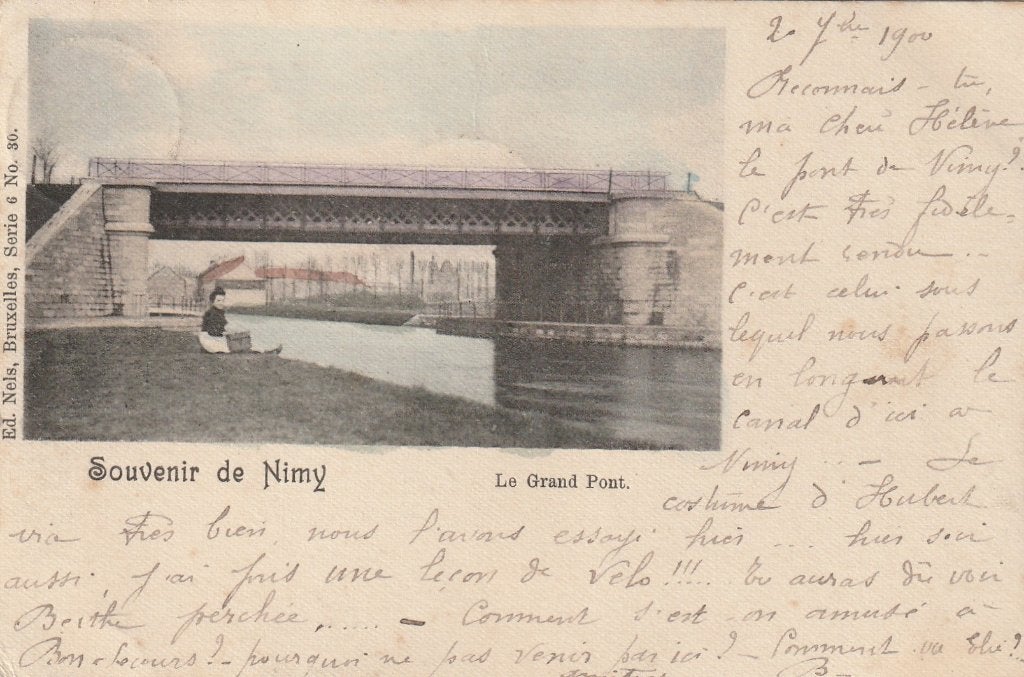 Ed. Nels, Bruxelles, Serie 6 No. 30.
2 7bre 1900
Reconnais-tu,
ma cheré Hélène
le pont de Nimy?
C'est très fidèle-
ment rendu...
C'est celui sous
lequel nous passons
en longeant le
canal d'ici à
Nimy... - Le
costume d'Hubert
Souvenir de Nimy
Le Grand Pont.
via très bien, nous l'avons essayé hier... hier soir
aussi, j'ai pris une leçon de vélo!!!... Tu auras dû voir
Berthe perchée,..... - Comment s'est-on amusé à
Bon-Secours? - pourquoi ne pas venir par ici? - Comment va Elie?